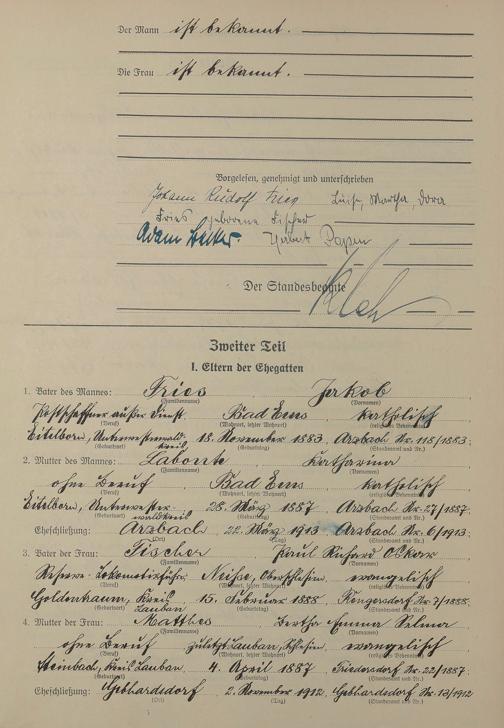 Der Mann ist bekannt.
Die Frau ist bekannt.
Vorgelesen, genehmigt und unterschrieben
Johann Rudolf Fries Luise, Martha, Dora
Fries geborene Fischer
Adam Herbert Papen
Der Standesbeamte
Zweiter Teil
I. Eltern der Ehegatten
1. Vater des Mannes: Fries Jakob
(Familienname) (Vornamen)
Postschaffner außer Dienst Bad Ems katholisch
(Beruf) (Wohnort, letzter Wohnort)
Eitelborn, Unterwesterwald- 18. November 1883 Arzbach Nr. 118/1883
kreis
(Geburtsort) (Geburtstag) (Standesamt und Nr.)
2. Mutter des Mannes: Labonte Katharina
(Familienname) (Vornamen)
ohne Beruf Bad Ems katholisch
(Beruf) (Wohnort, letzter Wohnort)
Eitelborn, Unterwester- 28. März 1887 Arzbach Nr. 27/1887
waldkreis
(Geburtstag) (Standesamt und Nr.)
Eheschließung: Arzbach 22. März 1913 Arzbach Nr. 6/1913
(Ort) (Tag) (Standesamt und Nr.)
3. Vater der Frau: Fischer Paul Richard Oskar
(Familienname) (Vornamen)
Reserve-Lokomotivführer Neiße, Oberschlesien evangelisch
(Beruf) (Wohnort, letzter Wohnort)
Kreis 15. Februar 1888 Nr. 7/1888
Lauban
(Geburtsort) (Geburtstag) (Standesamt und Nr.)
4. Mutter der Frau: Matthes Bertha Emma Selma
(Familienname) (Vornamen)
ohne Beruf zuletzt Lauban, Schlesien evangelisch
(Beruf) (Wohnort, letzter Wohnort)
Steinbach, Kreis Lauban 4. April 1887 Nr. 22/1887
(Geburtsort) (Geburtstag) (Standesamt und Nr.)
Eheschließung: Gebhardsdorf 2. November 1912 Gebhardsdorf Nr. 13/1912
(Ort) (Tag) (Standesamt und Nr.)